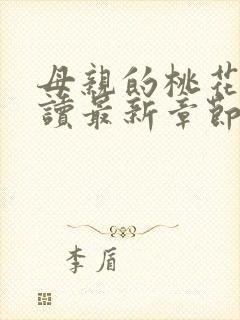 母親的桃花
讀最新章節
李眉